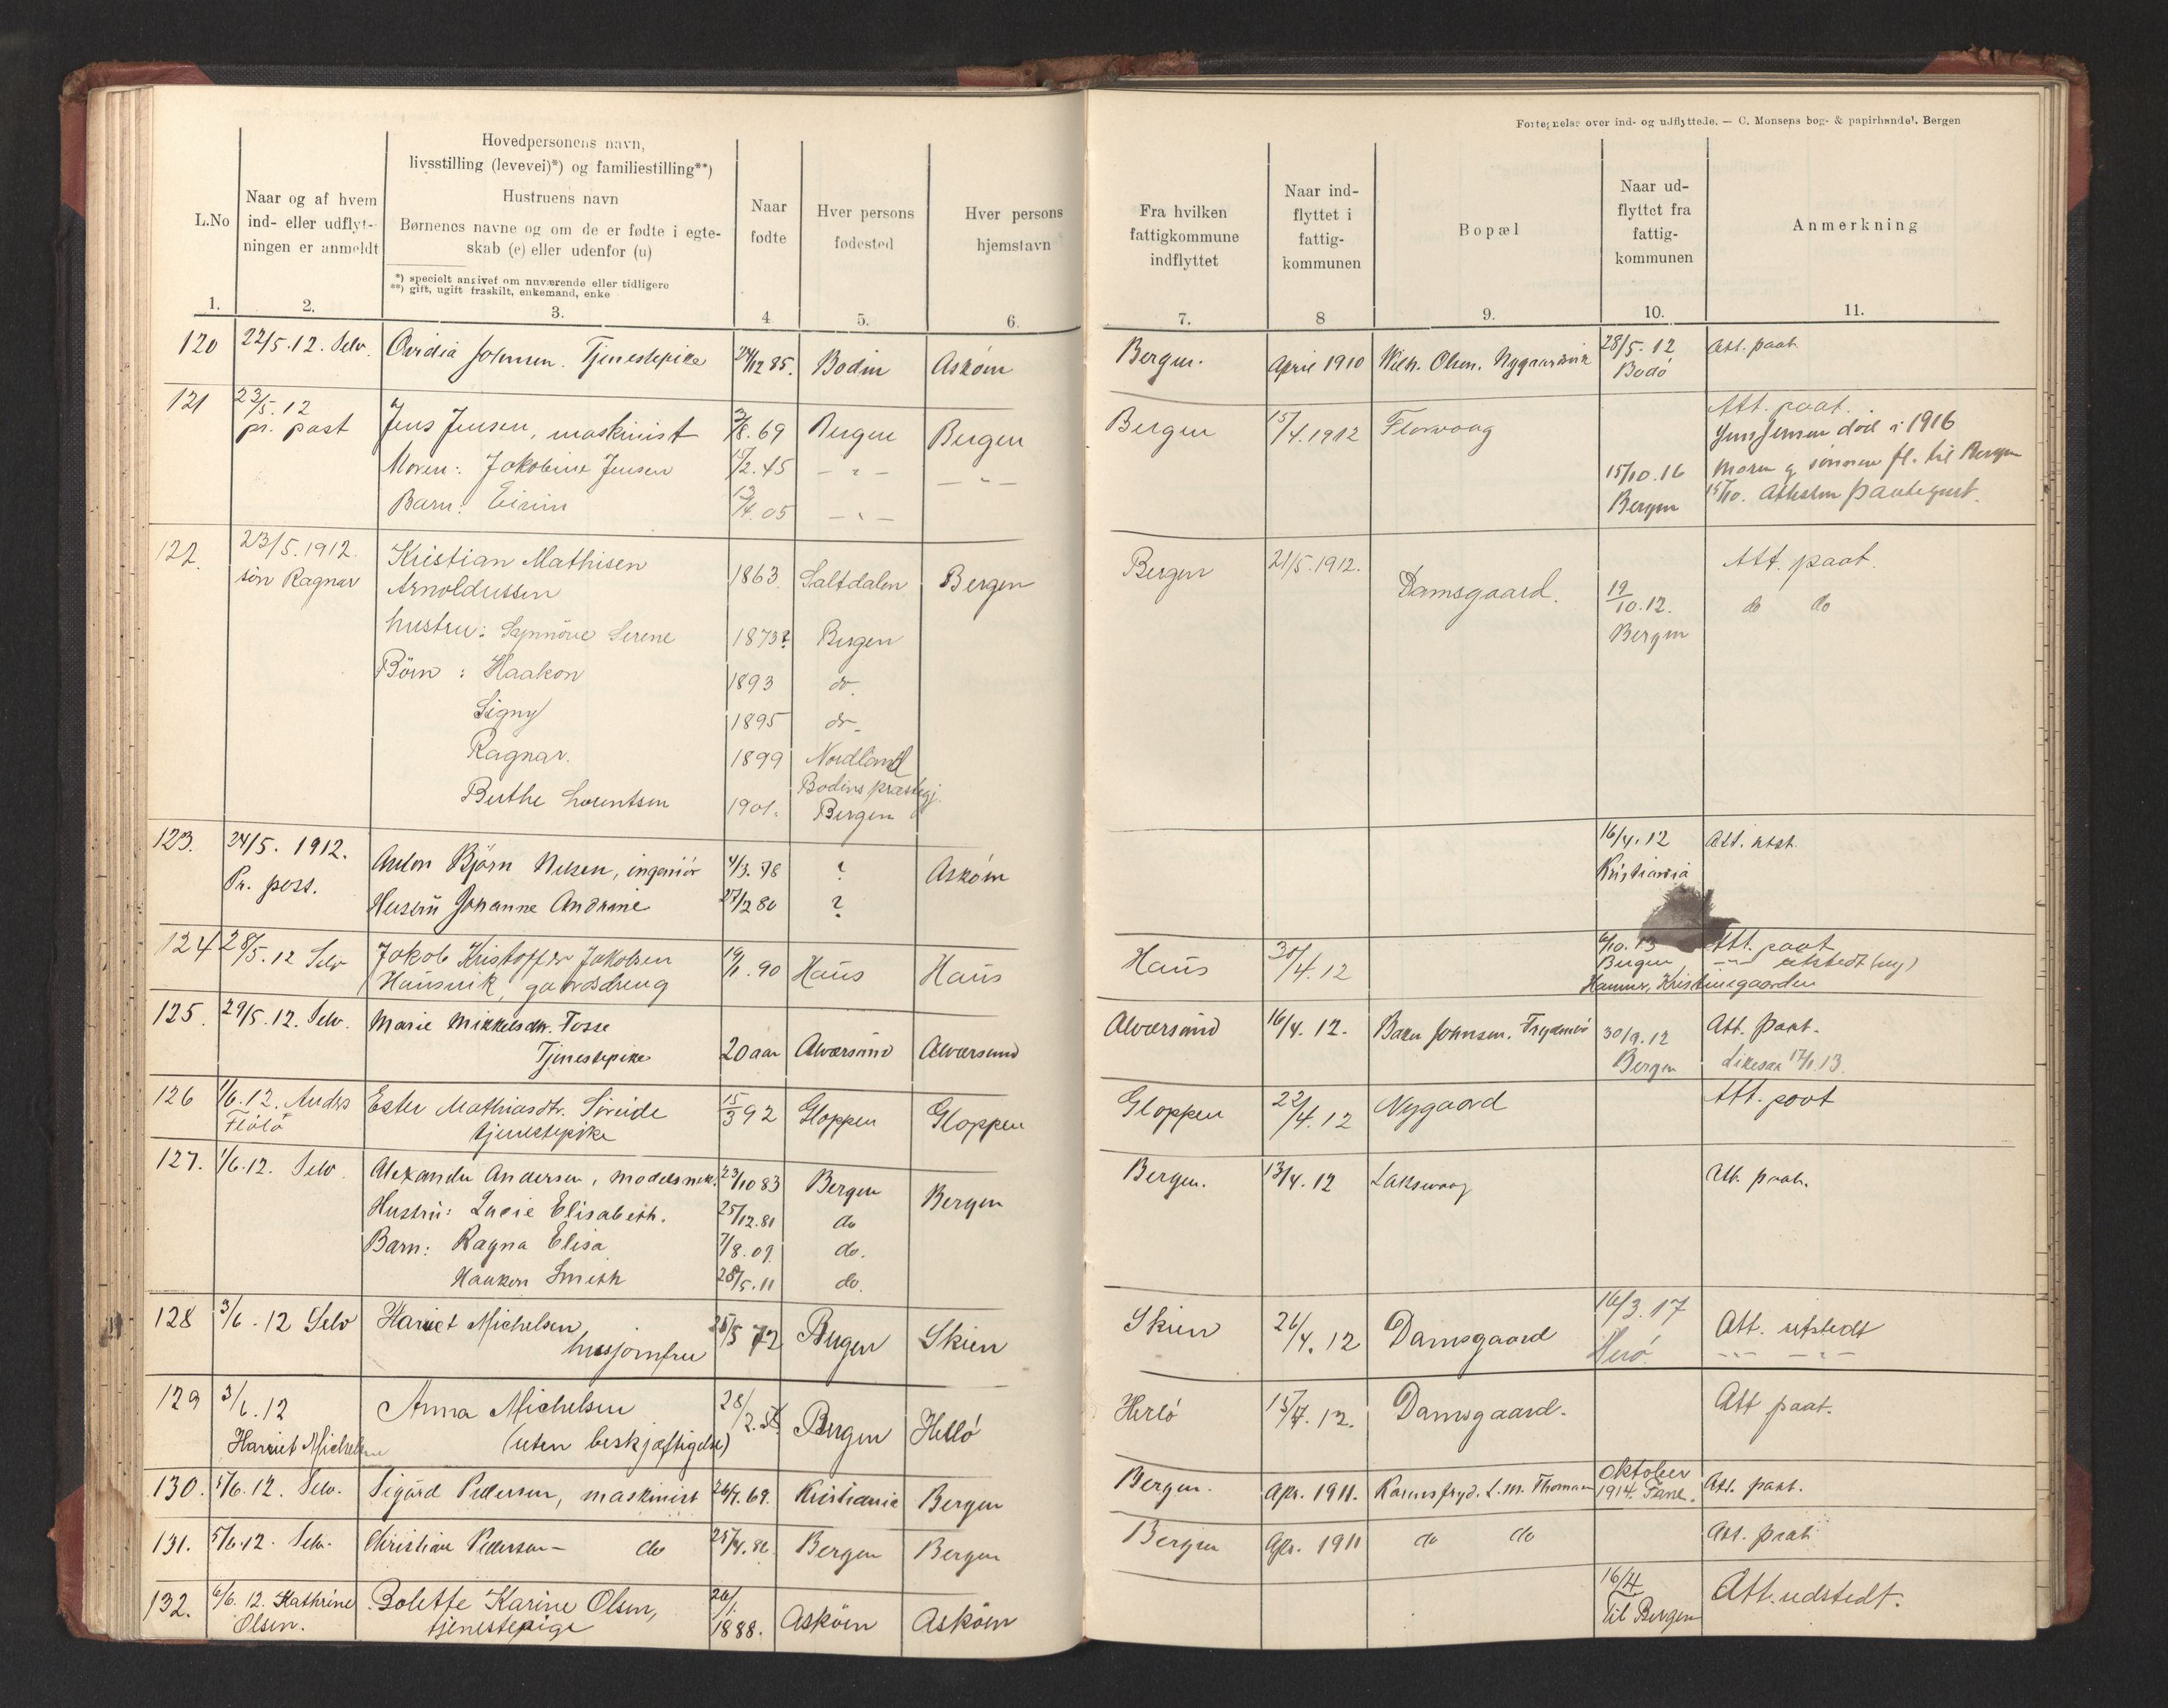 Fortegnelse over ind- og udflyttede. — C. Monsens bog- & papirhandel. Bergen
L.No
1.
Naar og af hvem
ind- eller udflyt-
ningen er anmeldt
2.
Hovedpersonens navn,
livsstilling (levevei)*) og familiestilling**)
Hustruens navn
Børnenes navne og om de er fødte i egte-
skab (e) eller udenfor (u)
*) specielt angivet om nuværende eller tidligere
**) gift, ugift fraskilt, enkemand, enke
3.
Naar
fødte
4
Hver persons
fødested
5.
Hver persons
hjemstavn
6.
Fra hvilken
fattigkommune
indflyttet
7.
Naar ind-
flyttet i
fattig-
kommunen
8
Bopæl
9.
Naar ud-
flyttet fra
fattig-
kommunen
10.
Anmerkning
11.
120 22/5.12. Selv. Ovidia Johnsen. Tjenestepike 24/12 85. Bodin Askøen Bergen. April 1910 Wilh. Olsen. Nygaardsvik 28/5.12 Att. paat.
Bodö
121 23/5.12 Jens Jensen, maskinist 3/8.69 Bergen Bergen Bergen 15/4.1912 Florvaag Att. paat.
pr. post Jens Jensen död i 1916
Moren: Jakobine Jensen 15/2.45 — " — — " — 15/10.16 Moren og sönnen fl. til Bergen
Barn: Einar 13/4.05 — " — Bergen 15/10. Attesten paategnet.
122. 23/5.1912. Kristian Mathisen Bergen 21/5.1912. Att. paat.
sön Ragnar Arnoldussen 1863 Saltdalen Bergen Damsgaard. 19/10.12. do do
hustru: Synnöve Serene 1873? Bergen Bergen
Börn : Haakon 1893 do.
Signy 1895 do.
Ragnar. 1899 Nordland
Bodins præstegj.
Berthe Lorentsen 1901. Bergen
123. 24/5. 1912. Anton Björn Nilsen, ingeniör 4/3.78 ? Askøen 16/4.12 Att. utst.
Pr. post. Kristiania
Hustru Johanne Andrine 27/2 80 ?
124 28/5.12 Selv Jakob Kristoffer Jakobsen 19/1.90 Haus Haus Haus 30/4.12 6/10.13 Att. paat
Hausvik, gaardsdreng Bergen — " — utstedt (ny)
Hammer, Kristinegaarden
125. 29/5.12. Selv. Marie Mikkelsdtr. Fosse Alversund 16/4.12. 30/9.12 Att. paat.
Tjenestepike 20 aar Alversund Alversund Bergen Likesaa 17/1.13.
126 1/6.12. Anders Ester Mathiasdtr. Söreide 15/3 92 Gloppen Gloppen Gloppen 22/4.12 Nygaard Att. paat
Flölö tjenestepike
127. 1/6.12. Selv. Alexander Andersen, modelsnek. 23/10 83 Bergen Bergen Bergen. 13/4.12 Laksevaag Att. paat.
Hustru: Lucie Elisabeth. 25/12.81 do
Barn: Ragna Elisa 7/8.09 do.
Haakon Smith 28/5.11 do.
128 3/6.12 Selv Harriet Michelsen 25/5 72 Bergen Skien Skien 26/4.12 Damsgaard 16/3.17 Att. utstedt
husjomfru Herö — " — — " —
129 3/6.12 Anna Michelsen 28/2. Bergen Herlö Herlö 15/4.12. Damsgaard. Att paat.
Harriet Michelsen (uten beskjæftigelse)
130. 5/6.12. Selv. Sigurd Pedersen, maskinist 26/4.69. Kristiania Bergen Bergen. Apr. 1911. Ravnsfryd. L.M. Thomsen Oktober 1914. Fane. Att. paat.
131. 5/6.12. Selv. Christian Pedersen – do 25/4.86 Bergen Bergen Bergen Apr. 1911 do do Att. paat
132. 6/6.12. Kathrine Bolette Karine Olsen, 26/1. 1888. Asköen Asköen 16/4 Att. udstedt.
Olsen. tjenestepige til Bergen